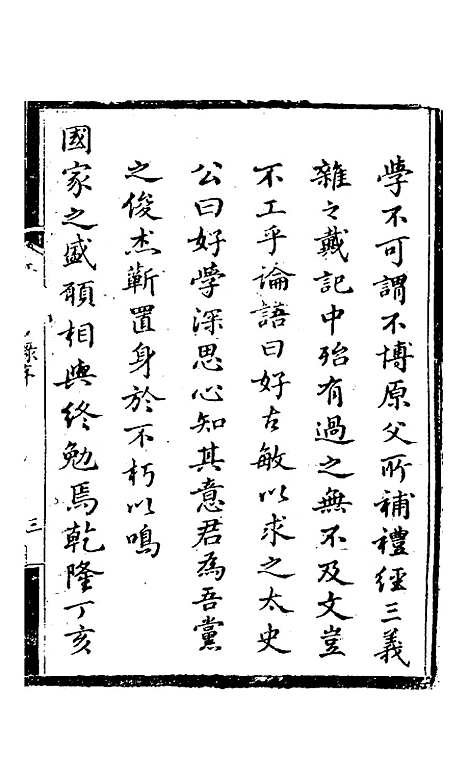 學不可謂不博原父所補禮經三義
雜之戴記中殆有過之無不及文豈
不工乎論語曰好古敏以求之太史
公曰好學深思心知其意君為吾黨
之俊杰蘄置身於不朽以鳴
國家之盛願相與終勉焉乾隆丁亥
序
三